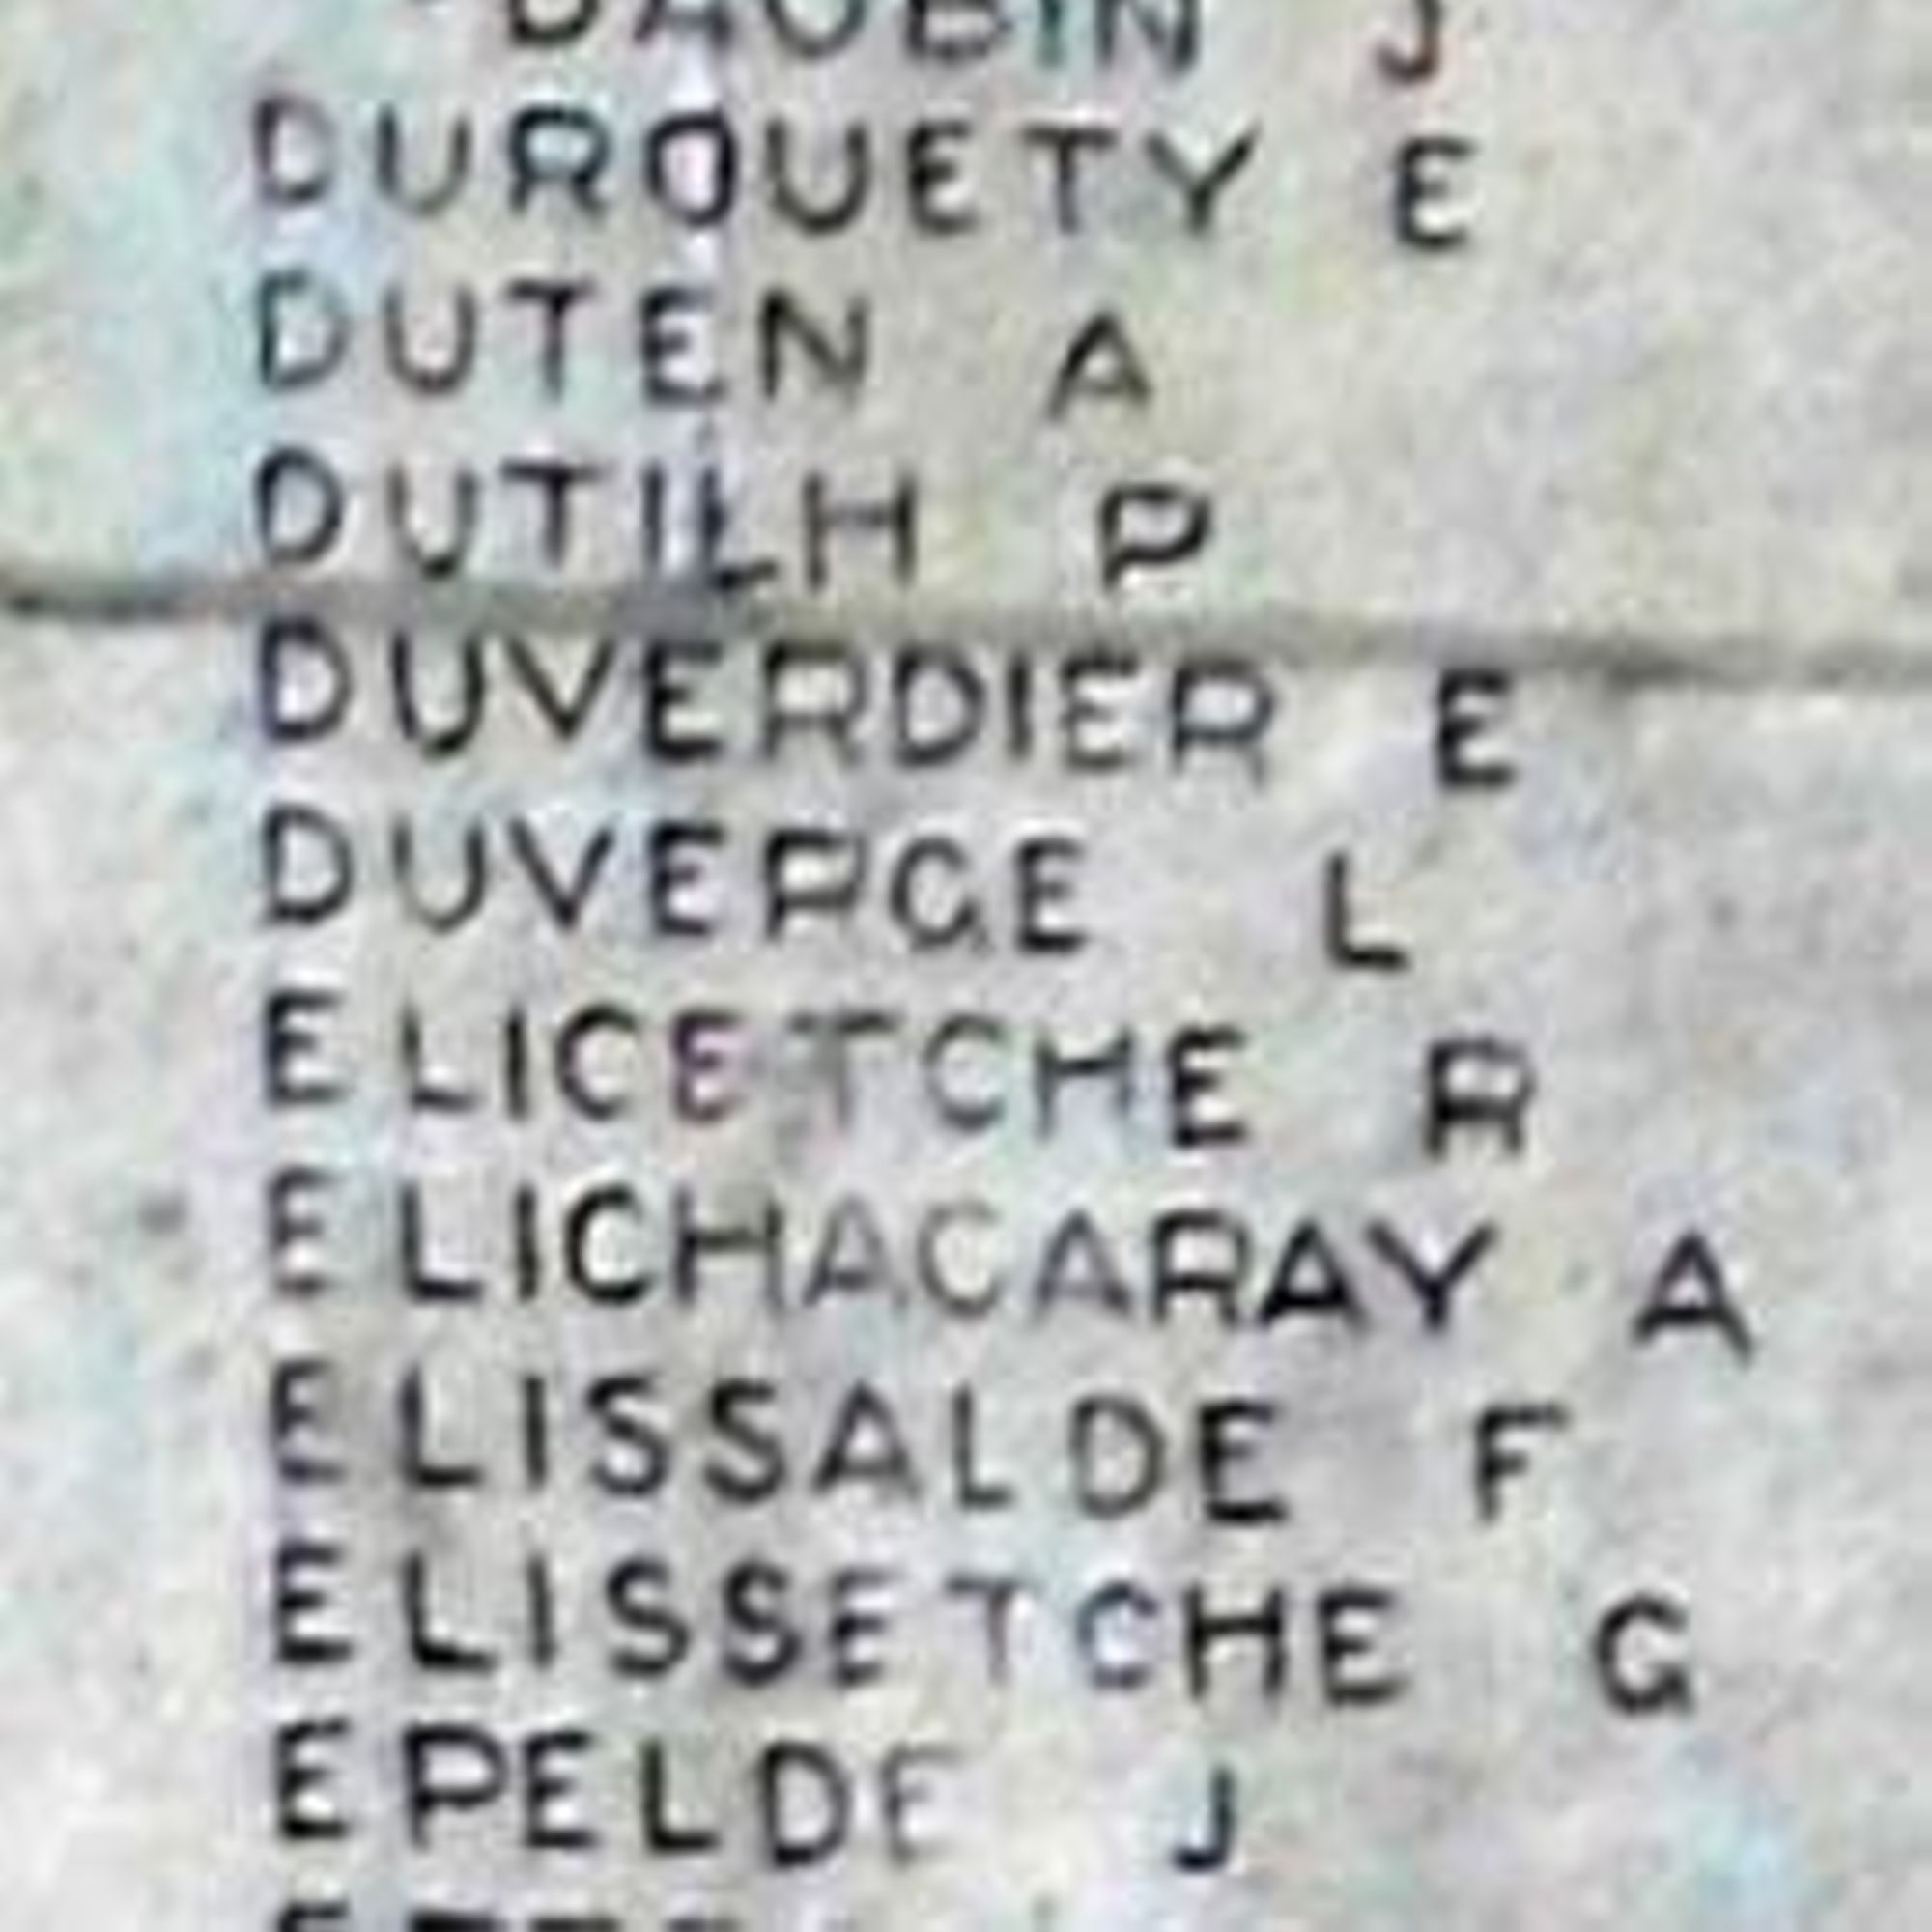 DAUBIN J
DURQUETY E
DUTEN A
DUTILH P
DUVERDIER E
DUVERGE L
ELICETCHE R
ELICHAGARAY A
ELISSALDE F
ELISSETCHE G
EPELDE J